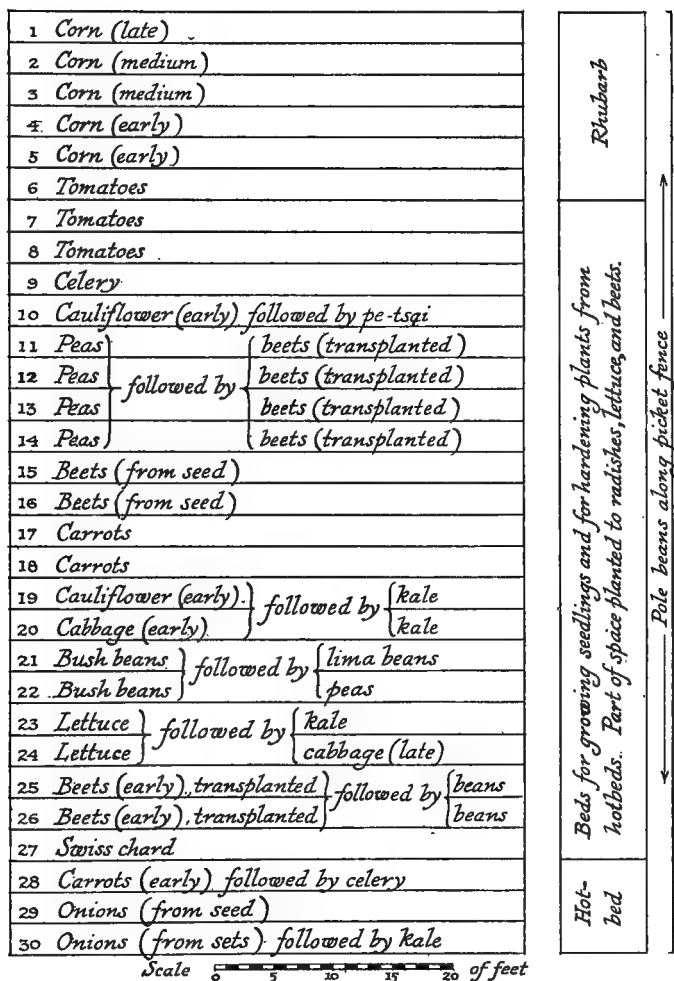 1 Corn (late)
2 Corn (medium)
3 Corn (medium)
4 Corn (early)
5 Corn (early)
6 Tomatoes
7 Tomatoes
8 Tomatoes
9 Celery
10 Cauliflower (early) followed by pe-tsai
11 Peas beets (transplanted)
12 Peas followed by beets (transplanted)
13 Peas beets (transplanted)
14 Peas beets (transplanted)
15 Beets (from seed)
16 Beets (from seed)
17 Carrots
18 Carrots
19 Cauliflower (early) followed by kale
20 Cabbage (early) kale
21 Bush beans followed by lima beans
22 Bush beans peas
23 Lettuce followed by kale
24 Lettuce cabbage (late)
25 Beets (early), transplanted followed by beans
26 Beets (early), transplanted beans
27 Swiss chard
28 Carrots (early) followed by celery
29 Onions (from seed)
30 Onions (from sets) followed by kale
Scale 0 5 10 15 20 of feet
Rhubarb
Beds for growing seedlings and for hardening plants from
hotbeds. Part of space planted to radishes, lettuce, and beets.
Hot-
bed
Pole beans along picket fence